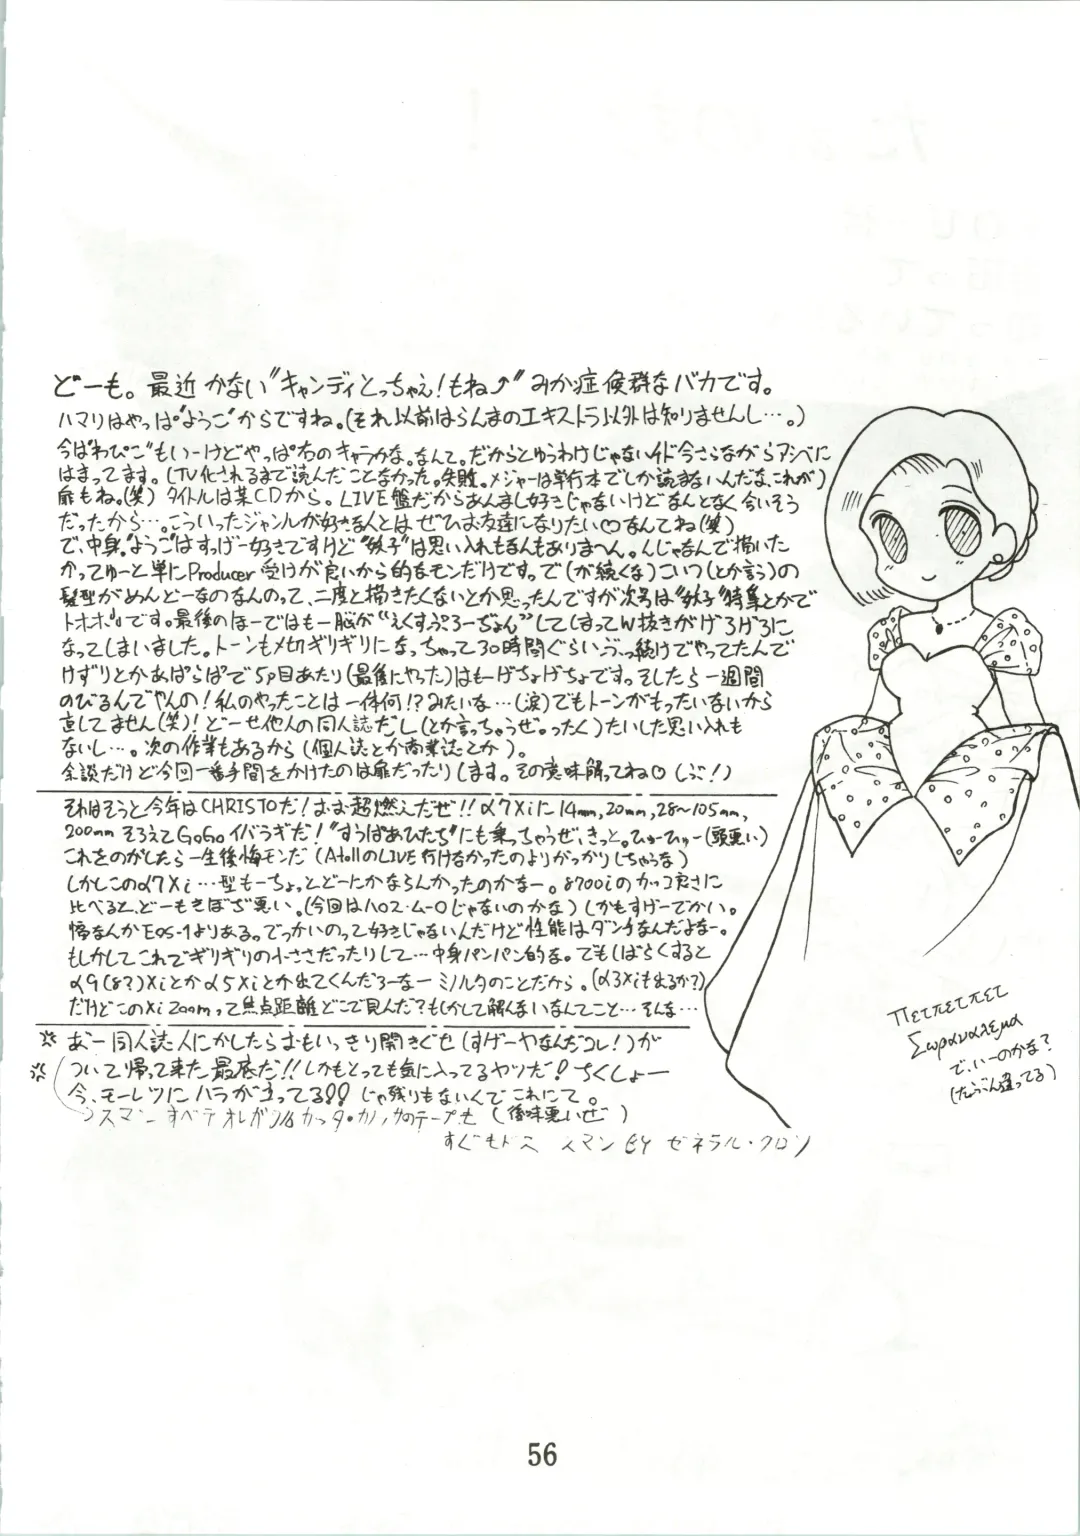 どーも。最近かない"キャンディとっちゃえ!もね⤴"みか症候群なバカです。
ハマリはやっぱ"ようこ"からですね。(それ以前はらんまのエキストラ以外は知りませんし…。)
今ば"わぴこ"もいーけどやっぱ右のキャラかな。なんて。だからとゆうわけじゃないけど今さらながらアシベに
はまってます。(TV化されるまで読んだことなかった。失敗。メジャーは単行本でしか読まないんだな、これが)
扉もね。(笑) タイトルは某CDから。LIVE盤だからあんまし好きじゃないけどなんとなく今いそう
だったから…。こういったジャンルが好きな人とは、ぜひお友達になりたい♡なんてね(笑)
で、中身。"ようこ"はすっげー好きですけど"妖子"は思い入れもなんもありませーん。んじゃなんで描いた
かってゆーと単にProducer受けが良いから的なモンだけです。で(が続くな)こいつ(とか言う)の
髪型がめんどーなのなんのって、二度と描きたくないとか思ったんですが次号は"妖子"特集とかで
トオホホです。最後のほーではもー脳が"えくすぷろーぢょん"してしまってW抜きがげろげろに
なってしまいました。トーンも〆切ギリギリになっちゃって30時間ぐらいぶっ続けでやってたんで
けずりとかあぱらぱで5p目あたり(最後にやった)はもーげちょげちょですっ。そしたら一週間
のびるんでやんの!私のやったことは一体何!?みたいな…(涙)でもトーンがもったいないから
直してません(笑)!どーせ他人の同人誌だし(とか言っちゃうぜ。ったく)たいした思い入れも
ないし…。次の作業もあるから(個人誌とか商業誌とか)。
余談だけど今回一番手間をかけたのは扉だったりします。その意味解ってね♡(しぶ!)
それはそうと今年はCHRISTOだ!おお超燃えだぜ!!α7Xiに14mm,20mm,28~105mm,
200mmそろえてGoGoイバラギだ!"すうぱあひたち"にも乗っちゃうぜ、きっと。ひゅーひゅー(頭悪い)
これをのがしたら一生後悔モンだ(AtollのLIVE行けなかったのよりがっかりしちゃうな)
しかしこのα7Xi…型もーちょっとどーにかならんかったのかなー。8700iのカッコ良さに
比べると、どーもきぼぢ悪い。(今回はハロス・ムーロじゃないのかな)しかもすげーでかい。
幅なんかEOS-1よりある。でっかいのって好きじゃないんだけど性能はダンチなんだよなー。
もしかしてこれでギリギリの小ささだったりして…中身パンパン的な。でもしばらくすると
α9(8?)Xiとかα5Xiとか出てくんだろーなー ミノルタのことだから。(α3Xiも出るか?)
だけどこのXi Zoomって焦点距離どこで見んだ?もしかして解んないなんてこと…そんな…
あー同人誌人にかしたらおもいっきり開きぐせ(すげーやなんだコレ!)が
ついて帰って来た最底だ!!しかもとっても気に入ってるヤツだ!ちくしょー
今、モーレツにハラが立ってる!!じゃ残りもないんでこれにて。
スマン すべテオレガ (後味悪いぜ)
すぐもドス スマン BY ゼネラル・クロソ
Πετπετπετ
Σωραναλεμα
で、いーのかな?
(たぶん違ってる)
56